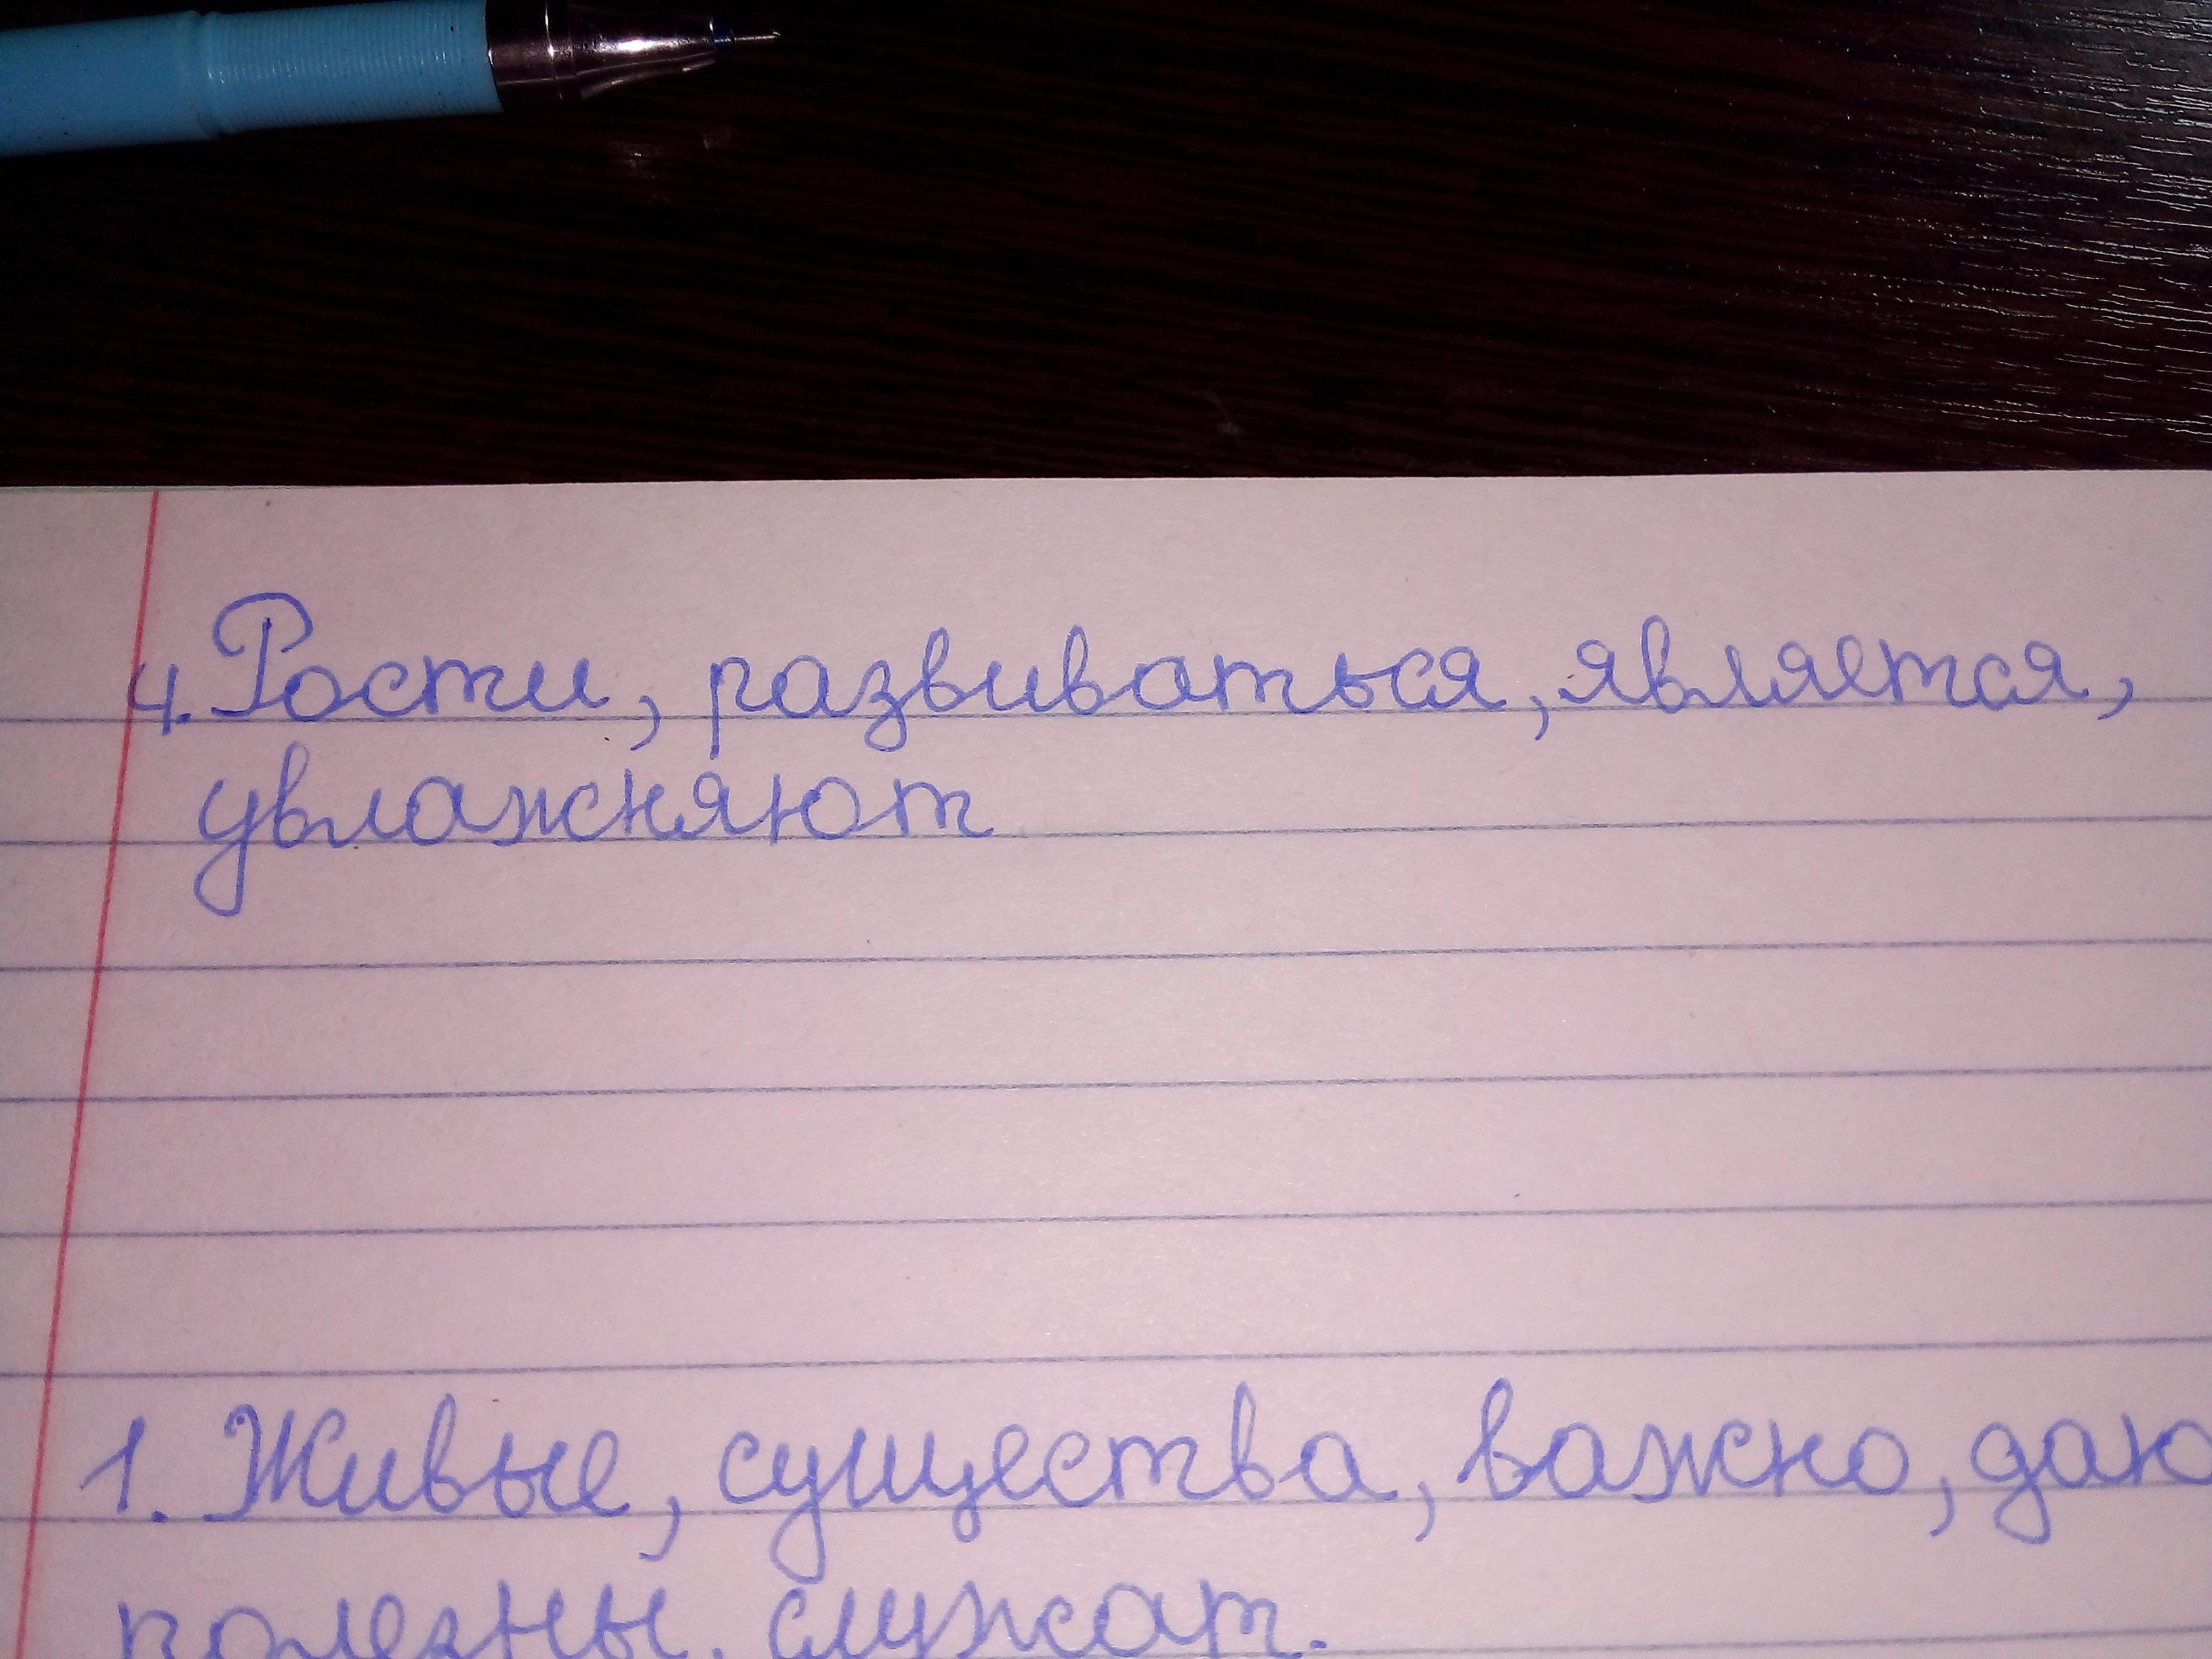 4. Рости, развиваться, является,
увлажняют
1. Живые, существа, важно, даю
полезны, служат.